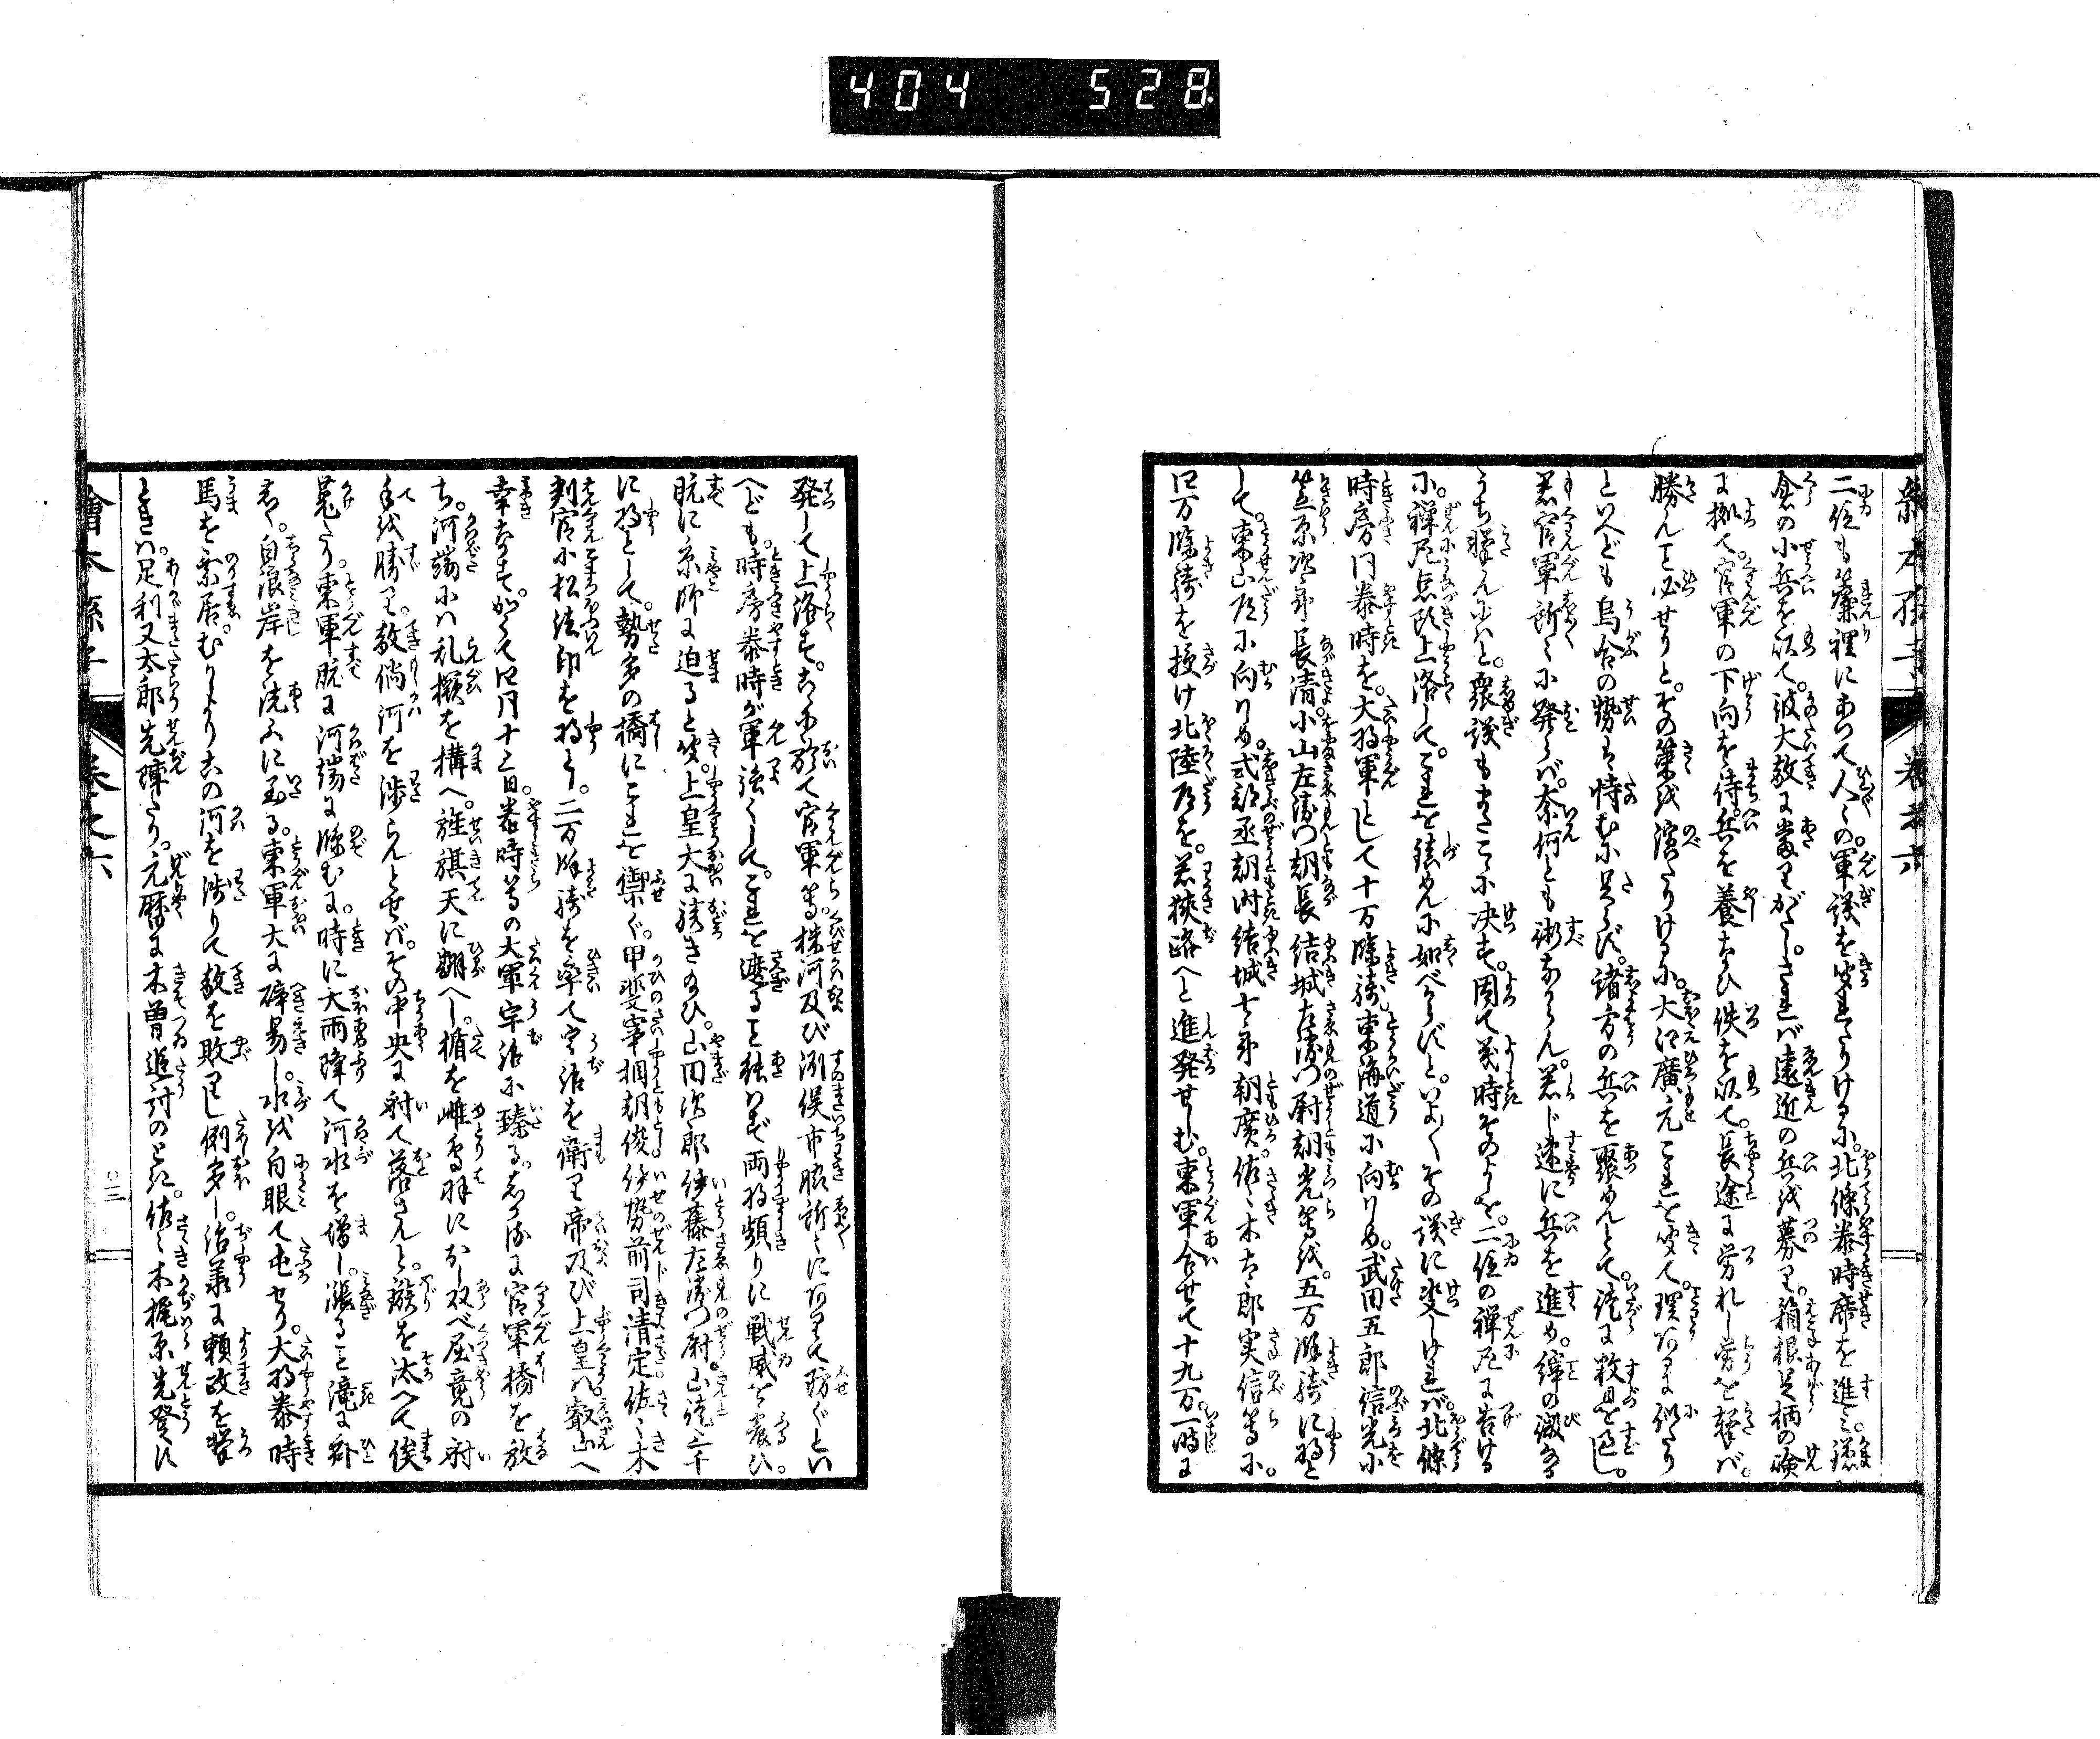 404 528.
繪本孫子 巻之六
二位も簾裡にあつて人々の軍議を聞れたりけるに。北條泰時席を進ミ。鎌
倉の小兵を以て。彼大敵に當りがたし。されバ遠近の兵を募り。箱根足柄の嶮
に拠て。官軍の下向を待。兵を養ひ佚を以て。長途に労れし労を撃バ。
勝んこと必せりと。その策を演たりけるに。大江廣元これを聞て。理あるに似たり
といへども烏合の勢は恃むに足らず。諸方の兵を聚めんとて。徒に数日を過し。
若官軍所々に発らバ。奈何とも術なからん。若じ速に兵を進め。
うち勝んにハと。衆議もまたこゝに决す。因て義時そのよしを。二位の禅尼に告ける
に。禅尼点頭上洛して。これを鎮めんに如べからずと。いよ〳〵その議に决しけれバ。北條
時房同泰時を。大将軍として十万餘騎。東海道に向しめ。武田五郎信光小
笠原次郎長清。小山左衛門朝長結城左衛門尉朝光等を。五万餘騎に将と
して。東山道に向しめ。式部丞朝時結城七郎朝廣。佐々木太郎実信等に。
四万餘騎を授け北陸道を。若狭路へと進発せしむ。東軍合せて十九万。一時に
発して上洛す。こゝに於て官軍等。株河及び洲俣市脇所々にありて防ぐとい
へども。時房泰時が軍強くして。これを遮ること能はず両将頻りに戦威を震ひ。
既に京師に迫ると聞。上皇大に驚きあひ。山田次郎伊藤左衛門尉。山徒三千
に将として。勢多の橋にこれを禦ぐ。甲斐宰相朝俊伊勢前司清定。佐々木
判官小松法印を将とし。二万餘騎を率て宇治を衛り帝及び上皇ハ叡山へ
幸なす。かくて同月十三日。泰時等の大軍宇治に臻る。しかるに官軍橋を放
ち。河端にハ乱橛を構へ。旌旗天に翻へし。楯を雌鳥羽になし双べ屈竟の射
手を勝り。敵倘河を渉らんとせバ。その中央に射て落さんと。鏃を汰へて俟
冕たり。東軍既に河端に臨むに。時に大雨降て河水を増し。漲ること滝に斉
しく。白浪岸を洗ふに至る。東軍大に辟易し。水を白眼て屯せり。大将泰時
馬を乗居。むかしよりこの河を渉りて敵を敗りし例多し。治承に頼政を撃
ときハ。足利又太郎先陣たり。元暦に木曽追討のとき。佐々木梶原先登に
繪本孫子 巻之六
○三